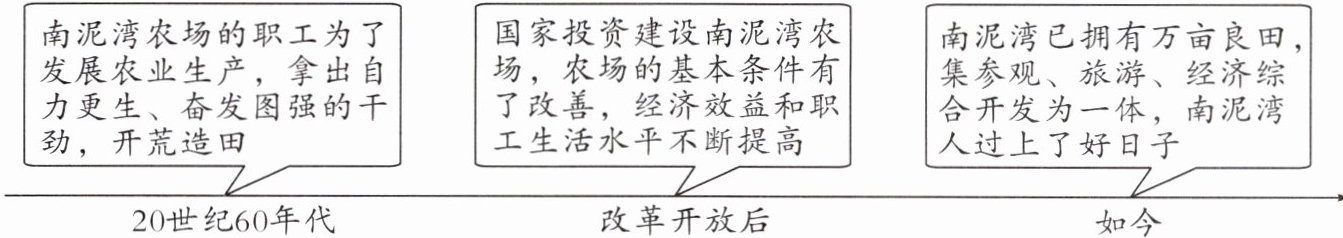 南泥湾农场的职工为了
发展农业生产，拿出自
力更生、奋发图强的干
劲，开荒造田
国家投资建设南泥湾农
场，农场的基本条件有
了改善，经济效益和职
工生活水平不断提高
南泥湾已拥有万亩良田，
集参观、旅游、经济综
合开发为一体，南泥湾
人过上了好日子
20世纪60年代
改革开放后
如今